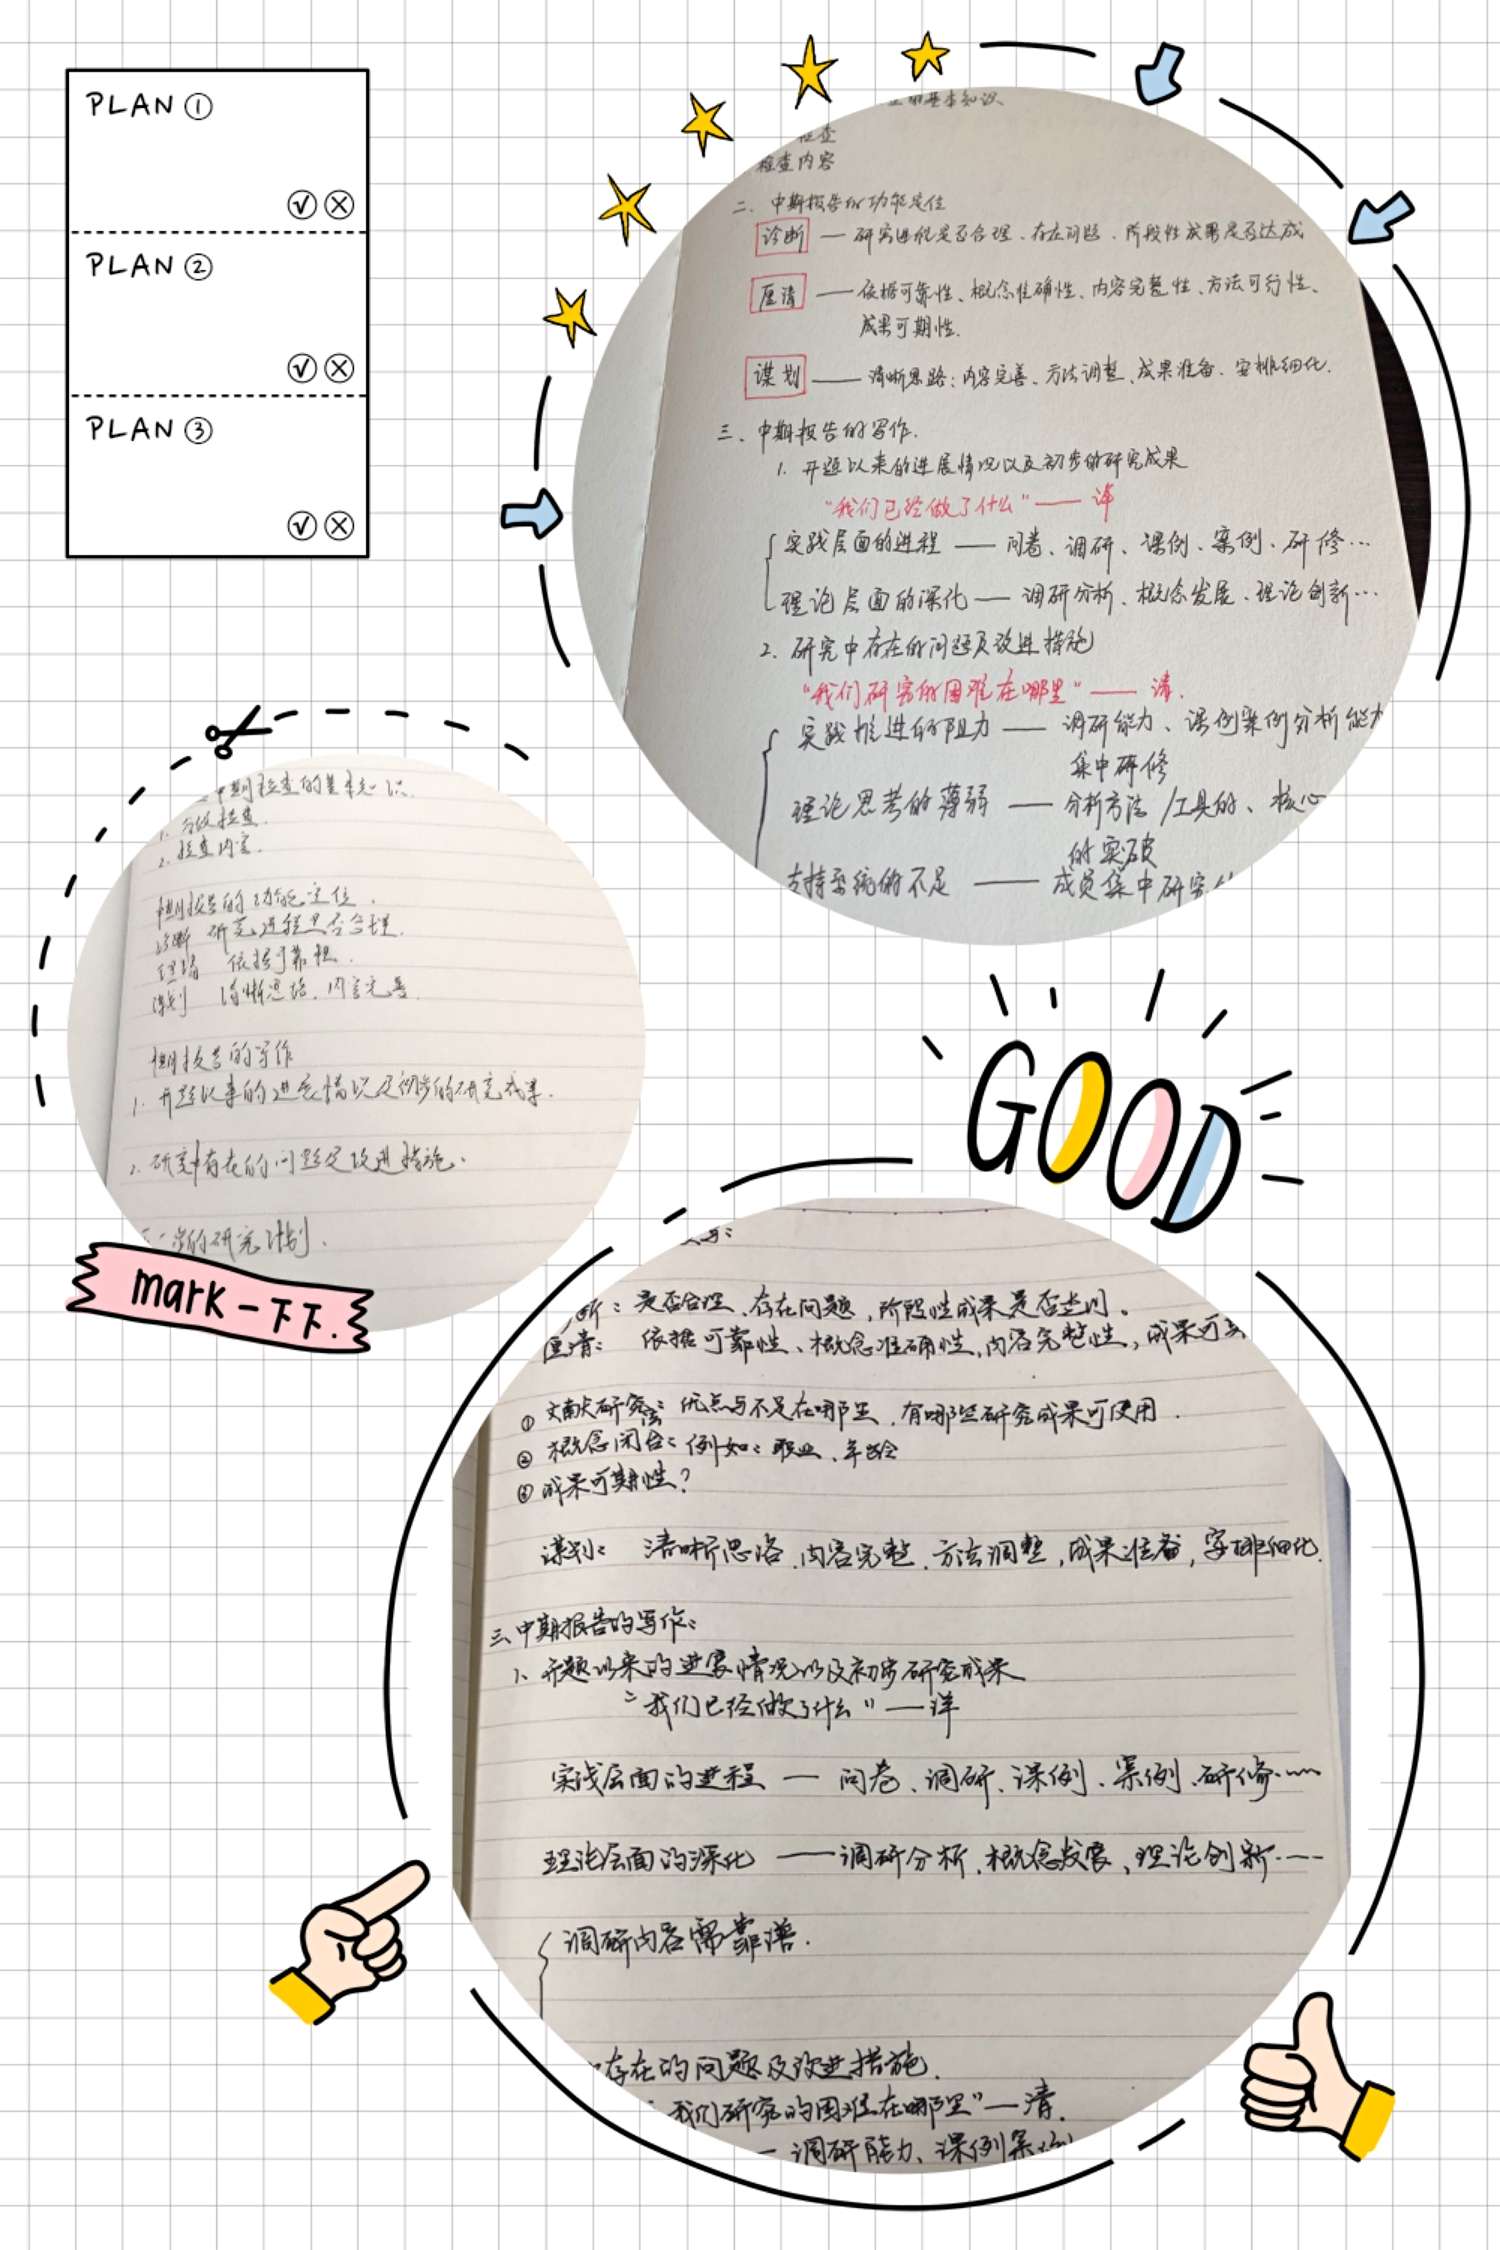 PLAN ①
PLAN ②
PLAN ③
的基本知识
检查
检查内容
二、中期报告的功能定位
诊断 — 研究进程是否合理、存在问题、阶段性成果是否达成
厘清 — 依据可靠性、概念准确性、内容完整性、方法可行性、
成果可期性.
谋划 — 清晰思路:内容完善、方法调整、成果准备、安排细化.
三、中期报告的写作.
1. 开题以来的进展情况以及初步的研究成果
"我们已经做了什么" — 详
实践层面的进程 — 问卷、调研、课例、案例、研修…
理论层面的深化 — 调研分析、概念发展、理论创新…
2. 研究中存在的问题及改进措施
"我们研究的困难在哪里" — 清.
实践推进的阻力 — 调研能力、课例案例分析能力
集中研修
理论思考的薄弱 — 分析方法/工具的、核心
的突破
支持系统的不足 — 成员集中研究
中期检查的基本知识.
1.
检查.
2. 检查内容.
中期报告的功能定位.
诊断 研究进程是否合理.
厘清 依据可靠性.
谋划 清晰思路.内容完善.
中期报告的写作
1. 开题以来的进展情况及初步的研究成果.
2. 研究中存在的问题及改进措施.
的研究计划.
mark一下下.
GOOD
断:是否合理、存在问题,阶段性成果是否达
厘清:依据可靠性、概念准确性,内容完整性,成果可
① 文献研究 优点与不足在哪里,有哪些研究成果可使用.
② 概念 例如:职业、年龄
③ 成果可期性?
谋划:清晰思路、内容完整、方法调整,成果准备,安排细化.
三、中期报告的写作:
1、开题以来的进展情况以及初步研究成果
"我们已经做了什么" — 详
实践层面的进程 — 问卷、调研、课例、案例、研修……
理论层面的深化 — 调研分析、概念发展、理论创新……
调研内容需靠谱.
存在的问题及改进措施.
我们研究的困难在哪里" — 清.
— 调研能力、课例案例